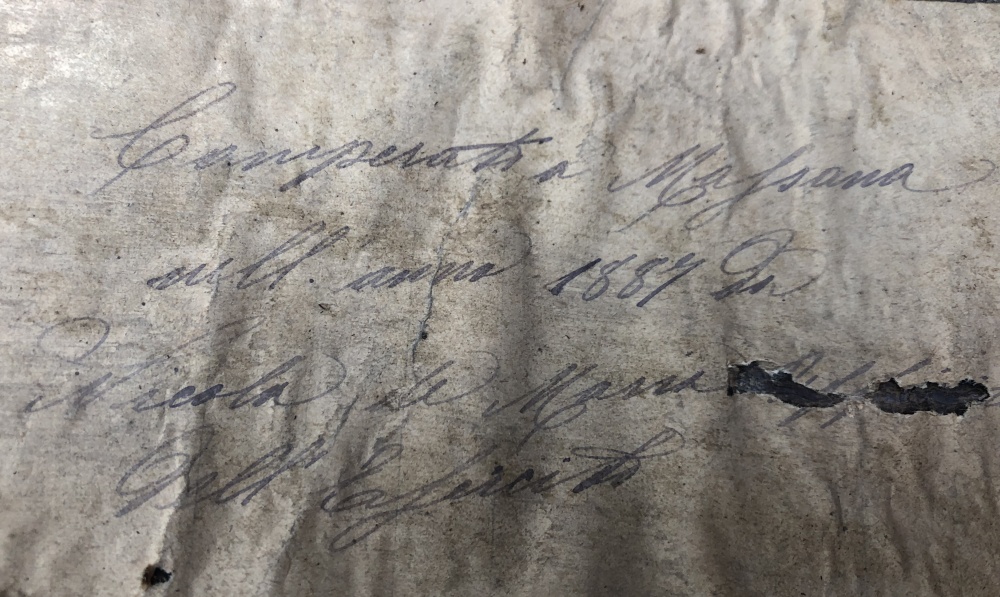 Comperato a Massaua
nell' anno 1887 da
Nicola de Marra
Dell' Esercito